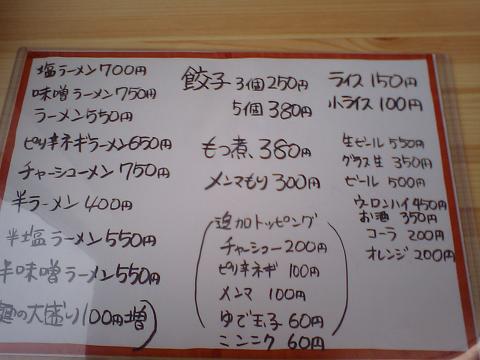 塩ラーメン700円
味噌ラーメン750円
ラーメン550円
ピリ辛ネギラーメン650円
チャーシューメン750円
半ラーメン400円
半塩ラーメン550円
半味噌ラーメン550円
麺の大盛り100円増)
餃子 3個250円
5個380円
もつ煮380円
メンマもり300円
追加トッピング
チャーシュー200円
ピリ辛ネギ100円
メンマ 100円
ゆで玉子60円
ニンニク60円
ライス150円
小ライス100円
生ビール550円
グラス生350円
ビール500円
ウーロンハイ450円
お酒350円
コーラ200円
オレンジ200円